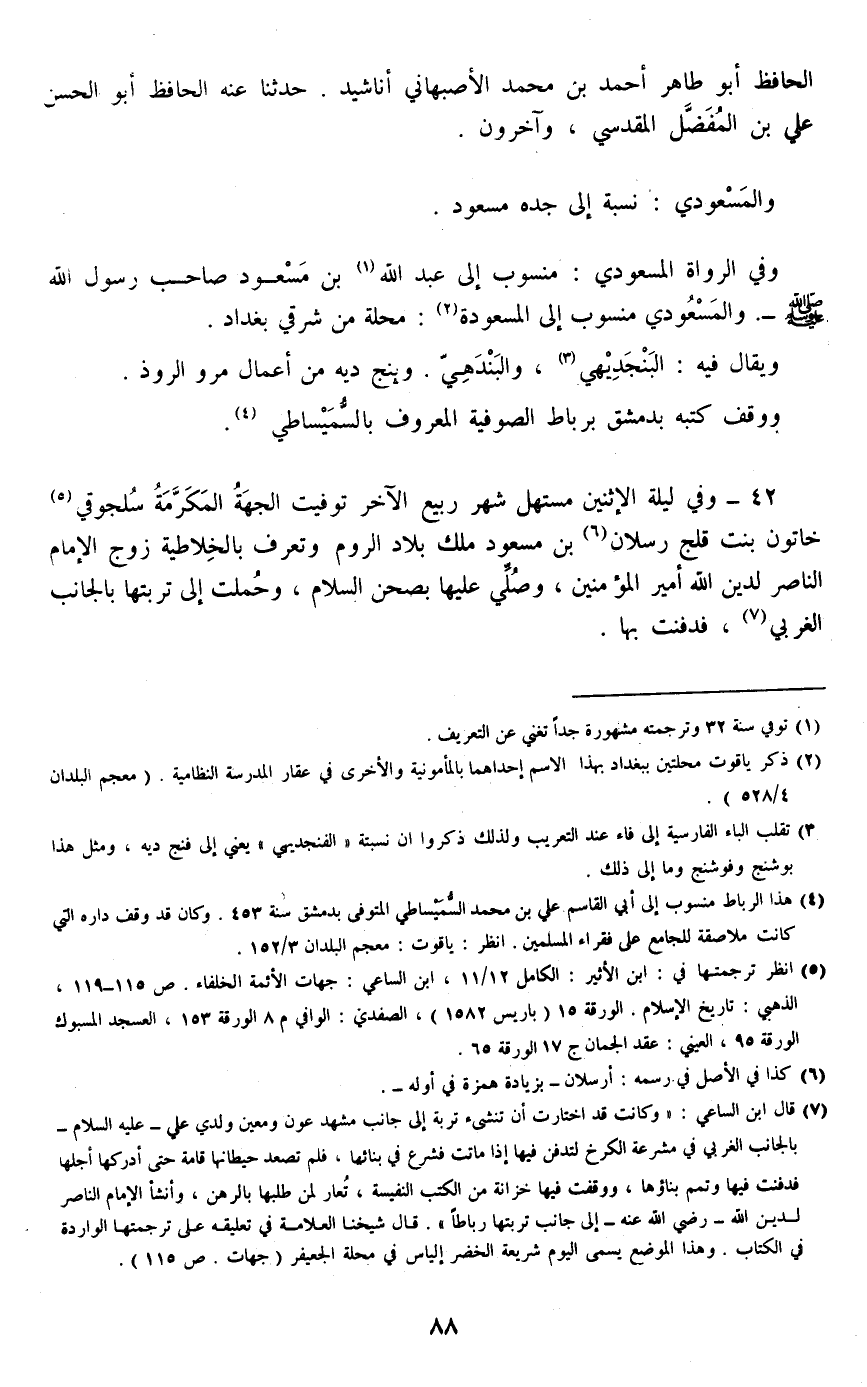 الحافظ أبو طاهر أحمد بن محمد الأصبهاني أناشيد . حدثنا عنه الحافظ أبو الحسن
علي بن المُفَضَّل المقدسي ، وآخرون .
والمَسْعودي : نسبة إلى جده مسعود .
وفي الرواة المسعودي : منسوب إلى عبد الله(١) بن مَسْعـود صاحب رسول الله
ﷺ ـ. والمَسْعُودي منسوب إلى المسعودة(٢) : محلة من شرقي بغداد .
ويقال فيه : البَنْجَدِيْهي(٣) ، والبَنْدَهِيّ . وبنج ديه من أعمال مرو الروذ .
ووقف كتبه بدمشق برباط الصوفية المعروف بالسُّمَيْساطي (٤).
٤٢ ـ وفي ليلة الإثنين مستهل شهر ربيع الآخر توفيت الجهَةُ المَكَرَّمَةُ سُلجوقي(٥)
خاتون بنت قلج رسلان(٦) بن مسعود ملك بلاد الروم وتعرف بالخِلاطية زوج الإمام
الناصر لدين الله أمير المؤمنين ، وصُلِّي عليها بصحن السلام ، وحُملت إلى تربتها بالجانب
الغربي(٧) ، فدفنت بها .
(١) توفي سنة ٣٢ وترجمته مشهورة جداً تغني عن التعريف .
(٢) ذكر ياقوت محلتين ببغداد بهذا الاسم إحداهما بالمأمونية والأخرى في عقار المدرسة النظامية . ( معجم البلدان
٥٢٨/٤ ) .
٣) تقلب الباء الفارسية إلى فاء عند التعريب ولذلك ذكروا ان نسبتة « الفنجديهي » يعني إلى فنج ديه ، ومثل هذا
بوشنج وفوشنج وما إلى ذلك .
(٤) هذا الرباط منسوب إلى أبي القاسم علي بن محمد السُّمَيْساطي المتوفى بدمشق سنة ٤٥٣ . وكان قد وقف داره التي
كانت ملاصقة للجامع على فقراء المسلمين . انظر : ياقوت : معجم البلدان ١٥٢/٣ .
(٥) انظر ترجمتها في : ابن الأثير : الكامل ١١/١٢ ، ابن الساعي : جهات الأئمة الخلفاء . ص ١١٥ـ١١٩ ،
الذهبي : تاريخ الإسلام . الورقة ١٥ ( باريس ١٥٨٢ ) ، الصفدي : الوافي م ٨ الورقة ١٥٣ ، العسجد المسبوك
الورقة ٩٥ ، العيني : عقد الجمان ج ١٧ الورقة ٦٥ .
(٦) كذا في الأصل في رسمه : أرسلان ـ بزيادة همزة في أوله ـ .
(٧) قال ابن الساعي : « وكانت قد اختارت أن تنشىء تربة إلى جانب مشهد عون ومعين ولدي علي ـ عليه السلام ـ
بالجانب الغربي في مشرعة الكرخ لتدفن فيها إذا ماتت فشرع في بنائها ، فلم تصعد حيطانها قامة حتى أدركها أجلها
فدفنت فيها وتمم بناؤها ، ووقفت فيها خزانة من الكتب النفيسة ، تُعار لمن طلبها بالرهن ، وأنشأ الإمام الناصر
لـديـن الله ـ رضي الله عنه ـ إلى جانب تربتها رباطاً » . قـال شيخنـا العلامـة في تعليقـه عـلى ترجمتهـا الواردة
في الكتاب . وهذا الموضع يسمى اليوم شريعة الخضر إلياس في محلة الجعيفر ( جهات . ص ١١٥ ) .
٨٨